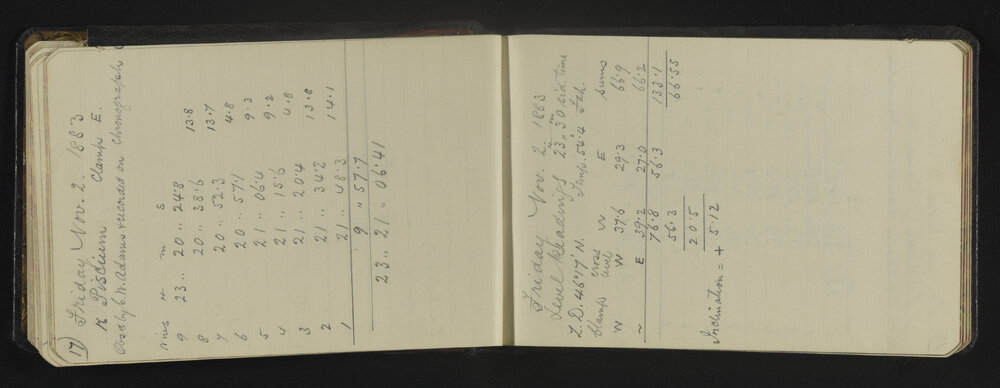 17
Friday Nov. 2. 1883
K Piscium Clamp E.
Obsd by C W. Adams & recorded on Chronograph
Wires H m s
9 23 " 20 " 24.8
8 20 " 38.6 13.8
7 20 " 52.3 13.7
6 20 " 57.1 4.8
5 21 " 06.4 9.3
4 21 " 15.6 9.2
3 21 " 20.4 4.8
2 21 " 34.2 13.8
1 21 " 48.3 14.1
9 " 57.7
23 " 21 " 06.41
Friday Nov. 2. 1883
Level Readings 23h 30m sid. time
Z.D. 46°17' N. Temp. 54°.4 Fah.
Clamp cross level W E Sums
W W 37.6 29.3 66.9
~ E 39.2 27.0 66.2
76.8 56.3 133.1
56.3 66.55
20.5
Inclination = + 5.12